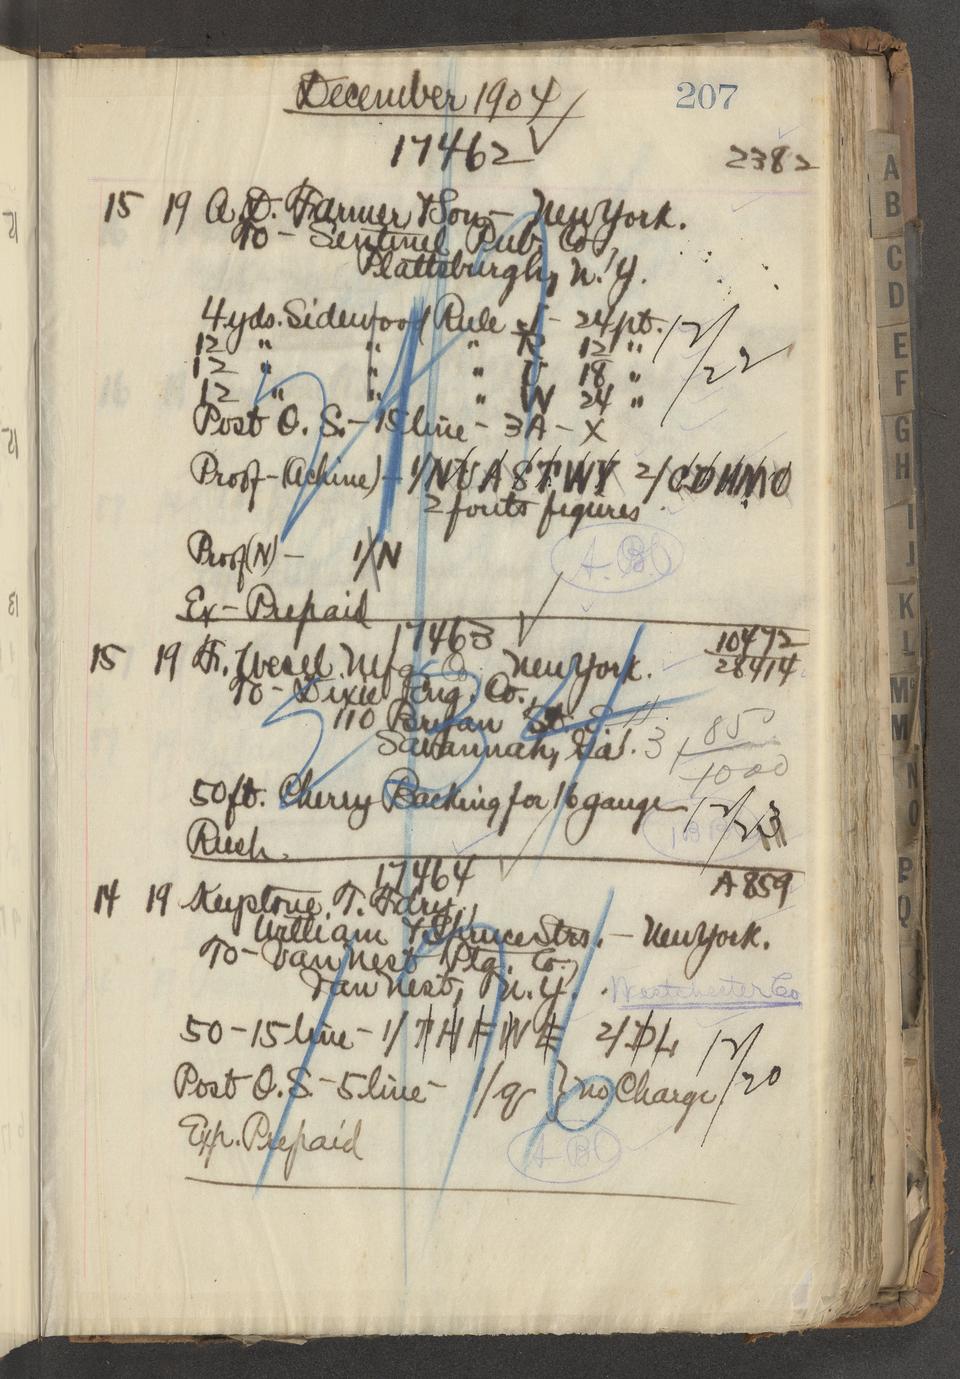 December 1904
207
17462
2382
15 19 A. D. Farmer & Son - New York.
To - Sentinel Pub. Co.,
Plattsburgh, N. Y.
4 yds. Sidewood Rule 24 pt.
12 " " " R 12 "
12 " " " U 18 "
12 " " " W 24 "
12/22
Post O. S. - 15 line - 3A - X
Proof - (Achine) - 1/N U A S T W Y 2/C D H M O
2 fonts figures
Proof (N) - 1/N
A. B.
Ex - Prepaid
17463
10472
28414
15 19 F. Wesel Mfg. Co. New York.
To - Dixie Eng. Co.,
110 Bryan St.
Savannah, Ga.
3 85
1000
50 ft. Cherry Backing for 16 gauge
12/23
Rush.
17464
A 859
14 19 Keystone T. Fdry.,
William & Spruce Strs. - New York.
To - Van Nest Ptg. Co.,
Van Nest, N. Y.
Westchester Co
50 - 15 line - 1/ T H F N E 2/ D L
12/20
Post O. S. - 5 line - 1/ g } no Charge
Exp. Prepaid
A B
A
B
C
D
E
F
G
H
I
J
K
L
M
M
N
O
P
Q